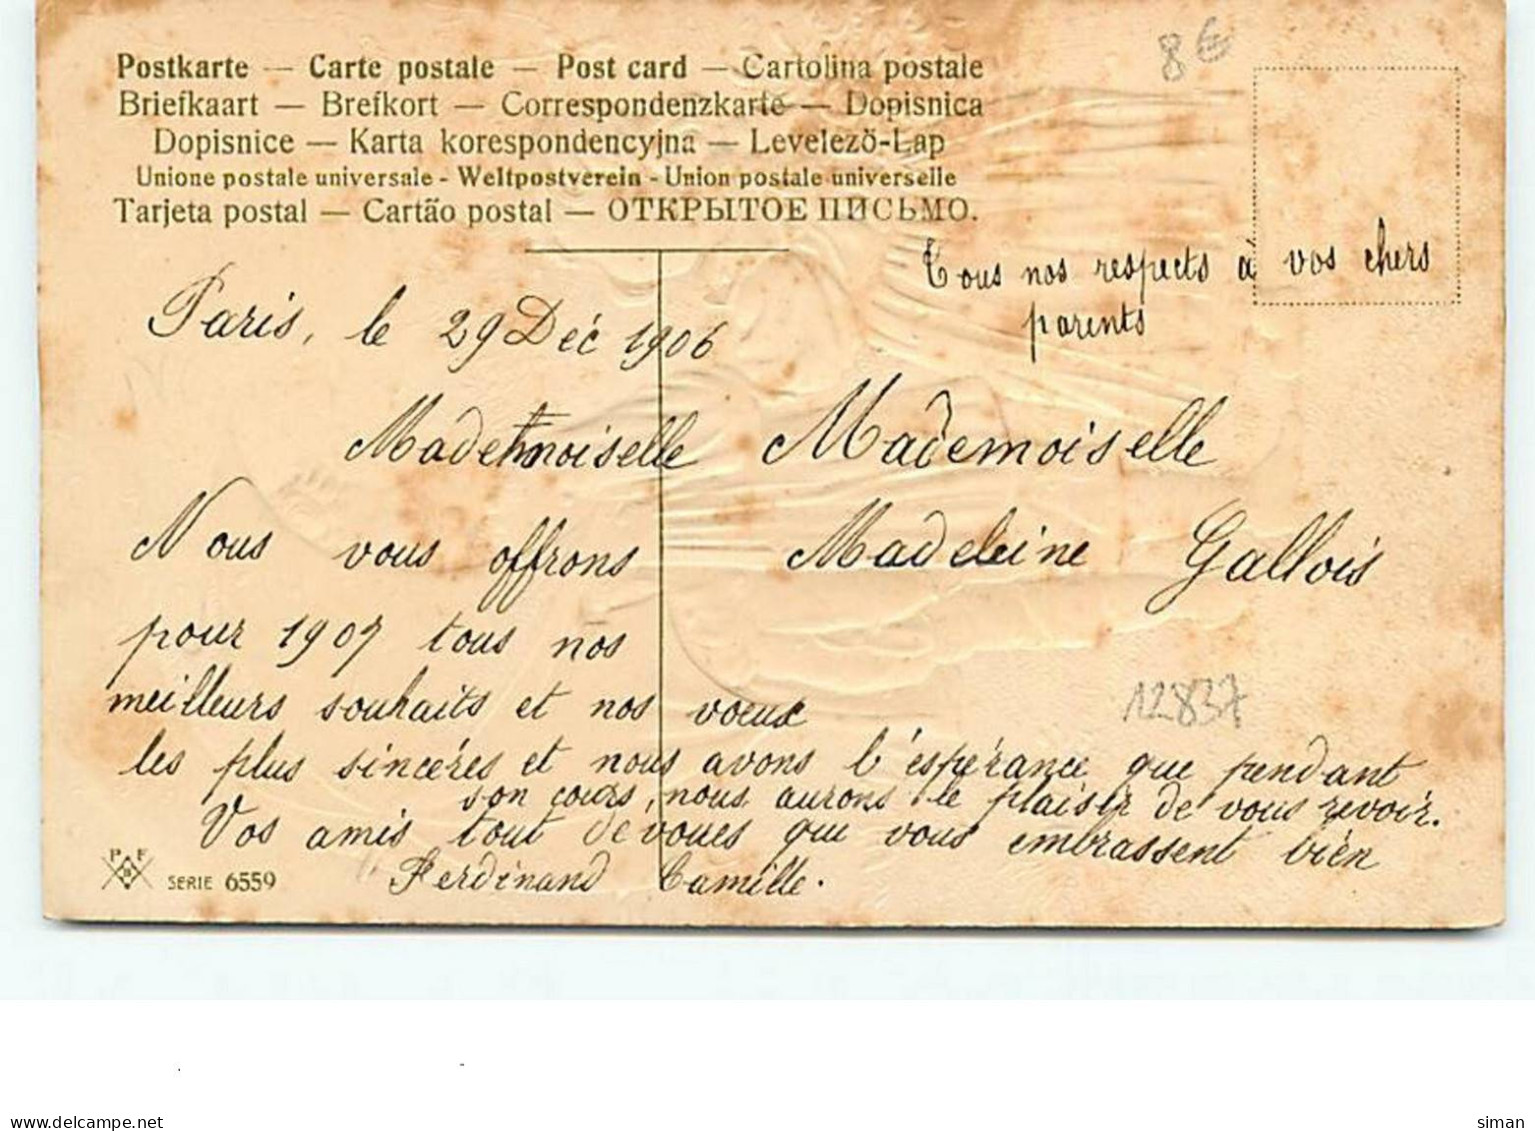 8 €
Postkarte — Carte postale — Post card — Cartolina postale
Briefkaart — Brefkort — Correspondenzkarte — Dopisnica
Dopisnice — Karta korespondencyjna — Levelezö-Lap
Unione postale universale - Weltpostverein - Union postale universelle
Tarjeta postal — Cartão postal — ОТКРЫТОЕ ПИСЬМО.
Tous nos respects à vos chers
parents
Paris, le 29 Déc 1906
Mademoiselle
Nous vous offrons
pour 1907 tous nos
meilleurs souhaits et nos voeux
les plus sincéres et nous avons l'éspérance que pendant
son cours, nous aurons le plaisir de vous revoir.
Vos amis tout devoues que vous embrassent bién
Ferdinand Camille.
Mademoiselle
Madeleine Gallois
12837
P F B
SERIE 6559
delcampe.net
siman